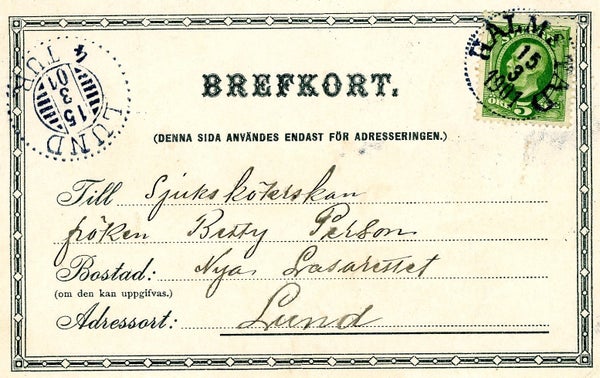 BREFKORT.
HALMSTAD
15
3
1901
5
ÖRE
LUND
15
3
01
TUR
4
(DENNA SIDA ANVÄNDES ENDAST FÖR ADRESSERINGEN.)
Till Sjuksköterskan
fröken Betty Person
Bostad: Nya Lasarettet
(om den kan uppgifvas.)
Adressort: Lund